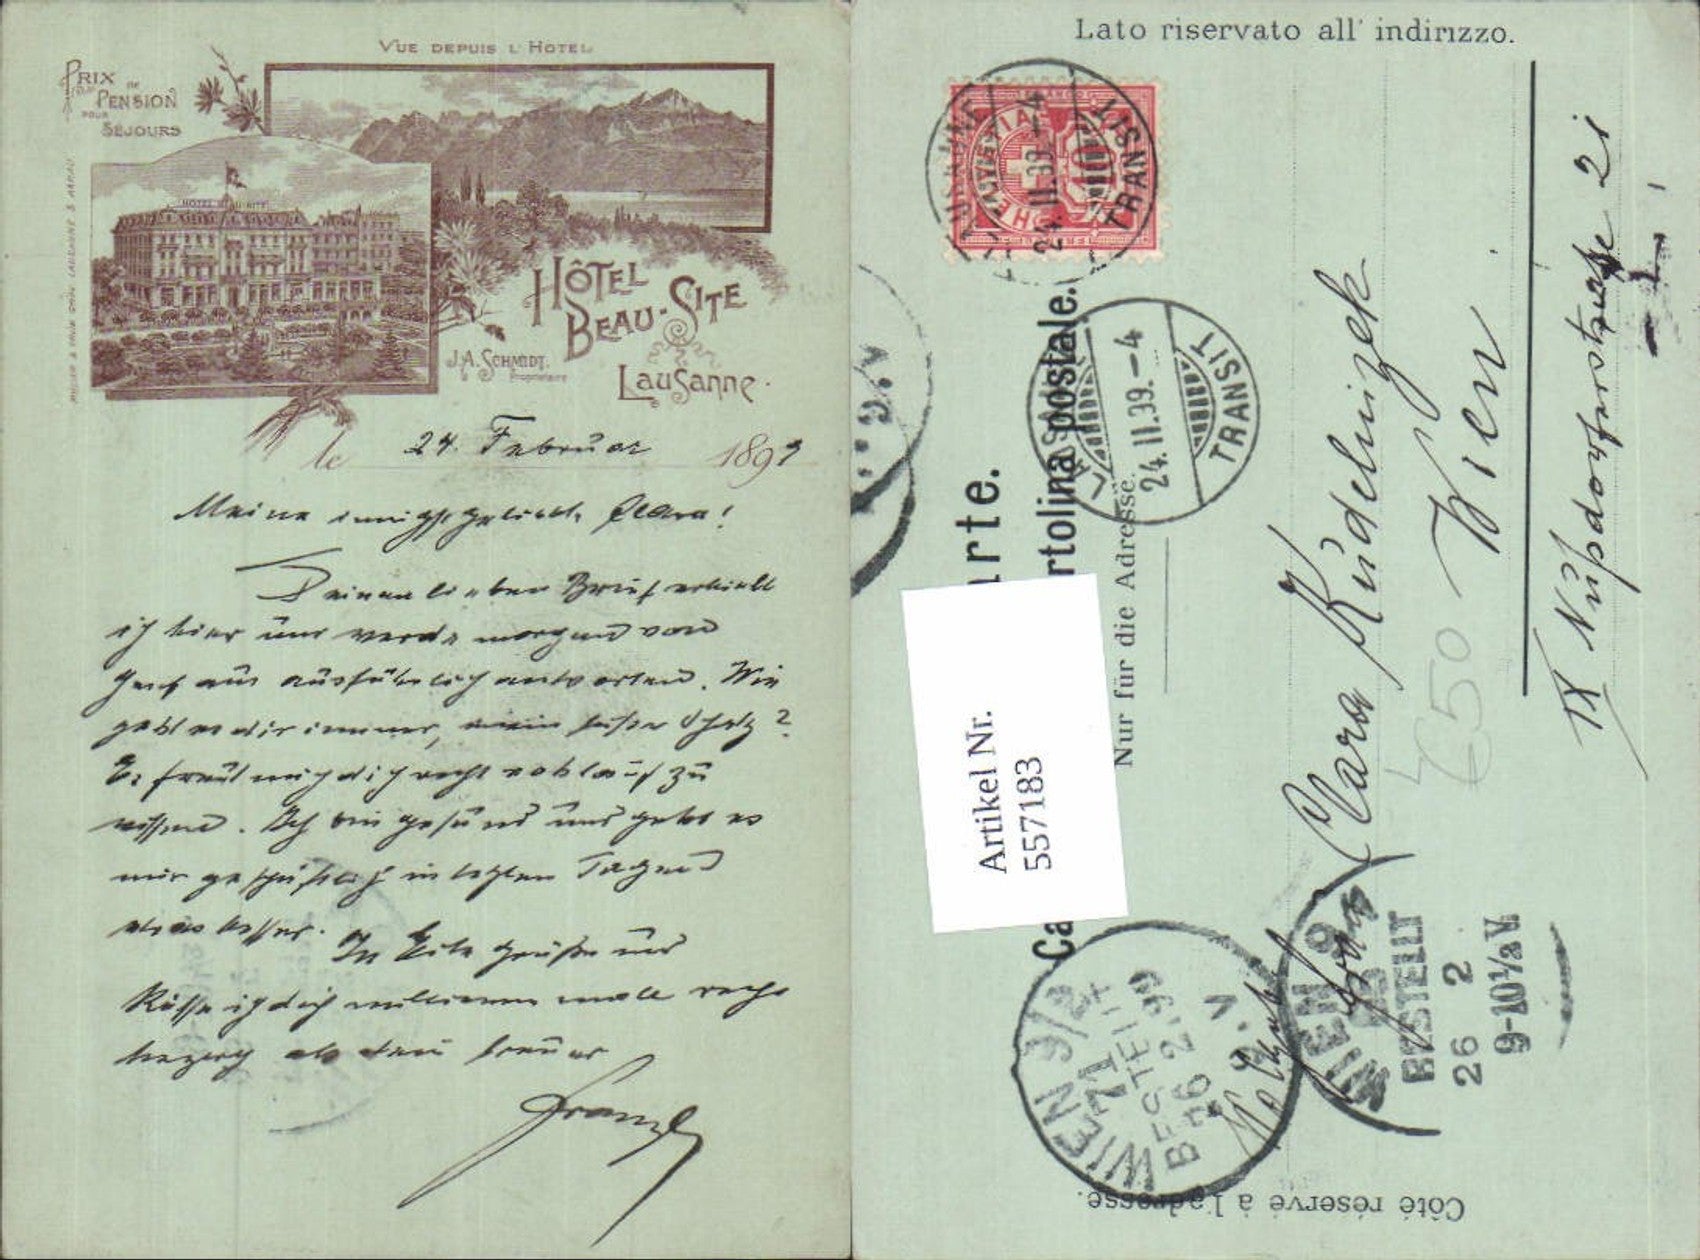 VUE DEPUIS L'HOTEL
PRIX
DE
PENSION
POUR
SÉJOURS
HOTEL BEAU-SITE
HÔTEL
BEAU-SITE
J.A. SCHMIDT.
Propriétaire
LAUSANNE.
le 24. Februar 1899
Meine innigstgeliebte Clara!
Deinen lieben Brief erhielt
ich hier und werde morgen von
Genf aus ausführlich antworten. Wie
geht es dir immer, mein süßer Schatz?
Es freut mich dich recht wohlauf zu
wissen. Ich bin gesund und geht es
mir geschäftlich in letzten Tagen
etwas besser.
In Eile grüße und
Küsse ich dich millionen male recht
herzig als dein treuer
Franzl
Lato riservato all' indirizzo.
HELVETIA
10
TRANSIT
24.II.99.-4
TRANSIT
24.II.99.-4
Carte
Cartolina postale.
Nur für die Adresse.
Artikel Nr.
557183
Frau Clara Kudelnizek
Wien
IX Nußdorferstraße 21
650
WIEN 9/2
71
BESTELLT
26 2 99
V
WIEN 9
BESTELLT
26 2
9-10½ V
Côté réservé à l'adresse.